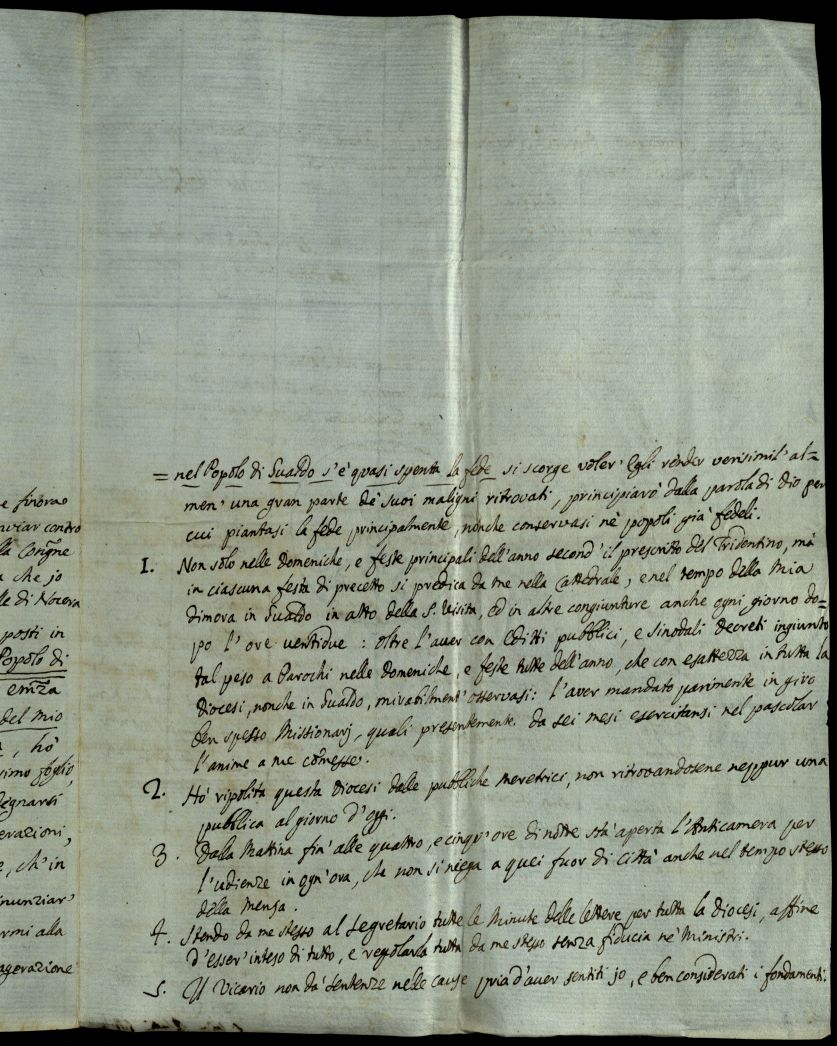 e finora
nviar contro
lla Congne
a che jo
lle di Nocera
posti in
Popolo di
emza
del mio
, hò
simo foglio,
degnarsi
erazioni,
e, ch'in
inunziar'
armi alla
agerazione
= nel Popolo di Gualdo s'è quasi spenta la fede si scorge voler' Egli render verisimil' al=
men' una gran parte de' suoi maligni ritrovati, principiarò dalla parola di Dio per
cui piantasi la fede principalmente, nonche conservasi nè popoli già fedeli.
1. Non solo nelle Domeniche, e feste principali dell'anno second' il prescritto del Tridentino, mà
in ciascuna festa di precetto si predica da me nella Cattedrale, e nel tempo della mia
dimora in Gualdo in atto della S. Visita, ed in altre congiunture anche ogni giorno do=
po l'ore ventidue : oltre l'aver con Editti pubblici, e Sinodali Decreti ingiunto
tal peso a Parochi nelle Domeniche, e feste tutte dell'anno, che con esattezza in tutta la
Diocesi, nonche in Gualdo, mirabilment' osservasi: l'aver mandato parimente in giro
ben spesso Missionarj, quali presentemente da sei mesi esercitansi nel pascolar
l'anime a me comesse.
2. Hò ripolita questa Diocesi dalle pubbliche meretrici, non ritrovandosene neppur una
pubblica al giorno d'oggi.
3. Dalla Mattina fin' alle quattro, e cinqu' ore di notte stà aperta l'Anticamera per
l'udienze in ogn'ora, che non si niega a quei fuor di Città anche nel tempo stesso
della mensa.
4. Stendo da me stesso al Segretario tutte le Minute delle lettere per tutta la Diocesi, affine
d'esser' inteso di tutto, e regolarla tutta da me stesso senza fiducia ne' Ministri.
5. Il Vicario non dà sentenze nelle cause pria d'aver sentiti jo, e ben considerati i fondamenti.